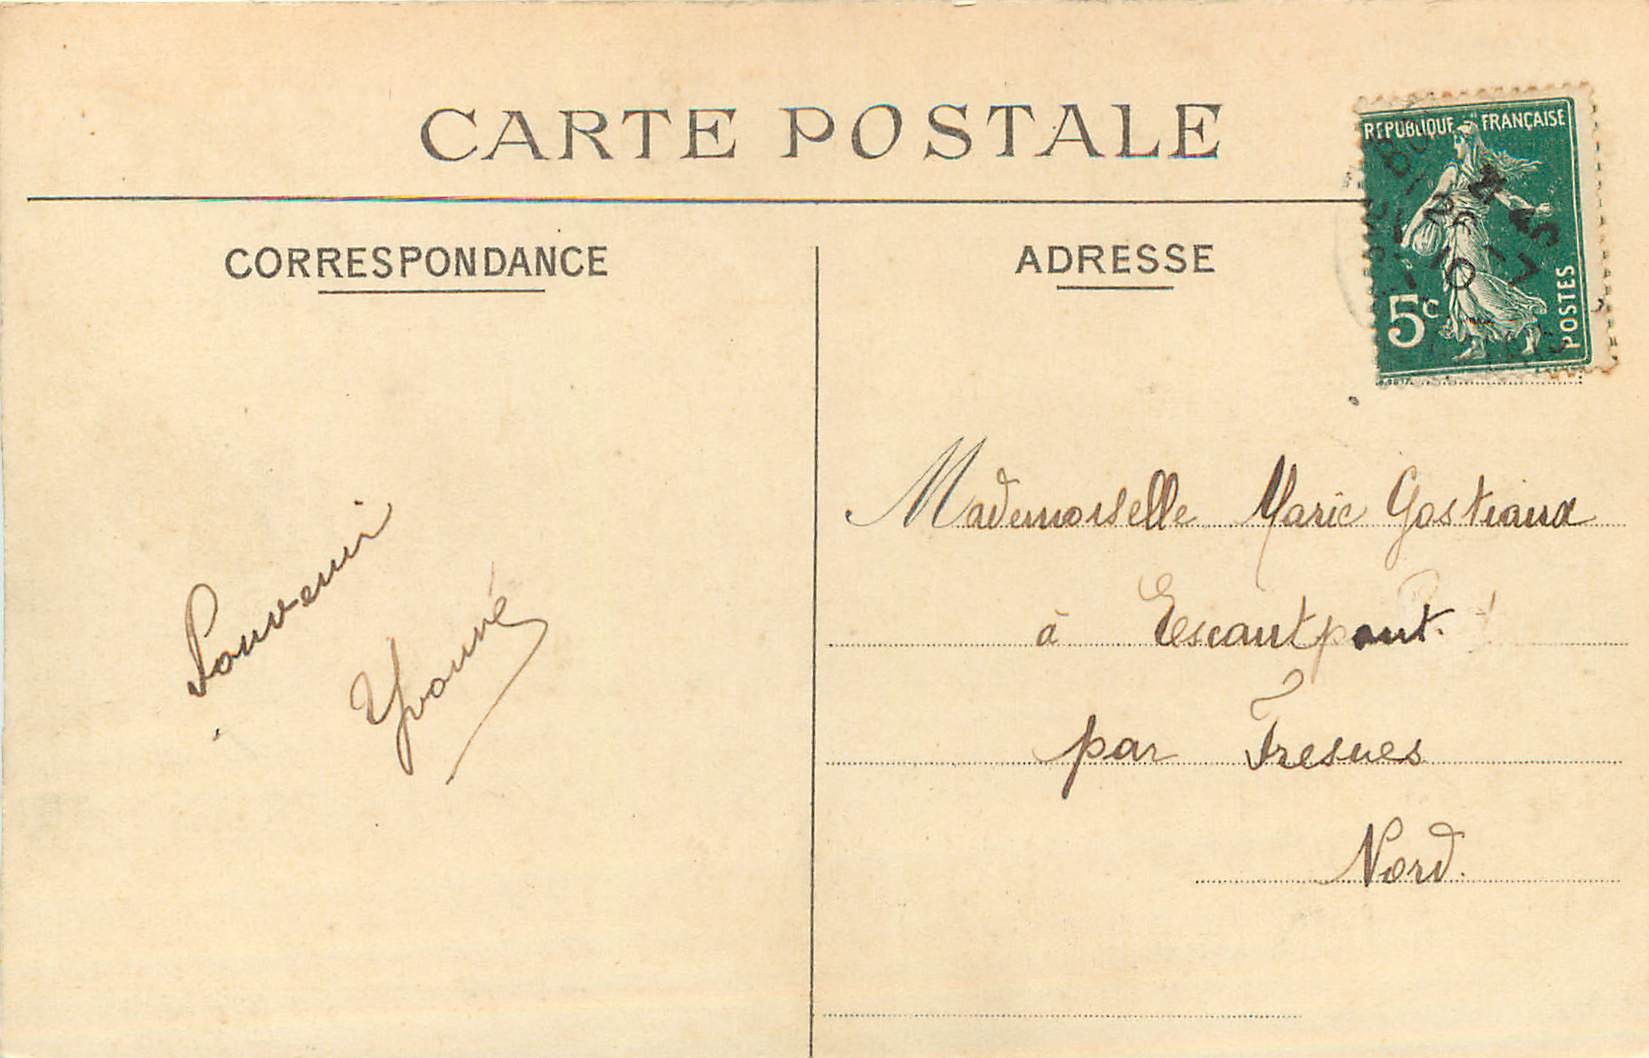 CARTE POSTALE
CORRESPONDANCE
ADRESSE
REPUBLIQUE FRANÇAISE
5c
POSTES
26-7
10
Souvenir
Yvonne
Mademoiselle Marie Gostiaux
à Escautpont.
par Fresnes
Nord.